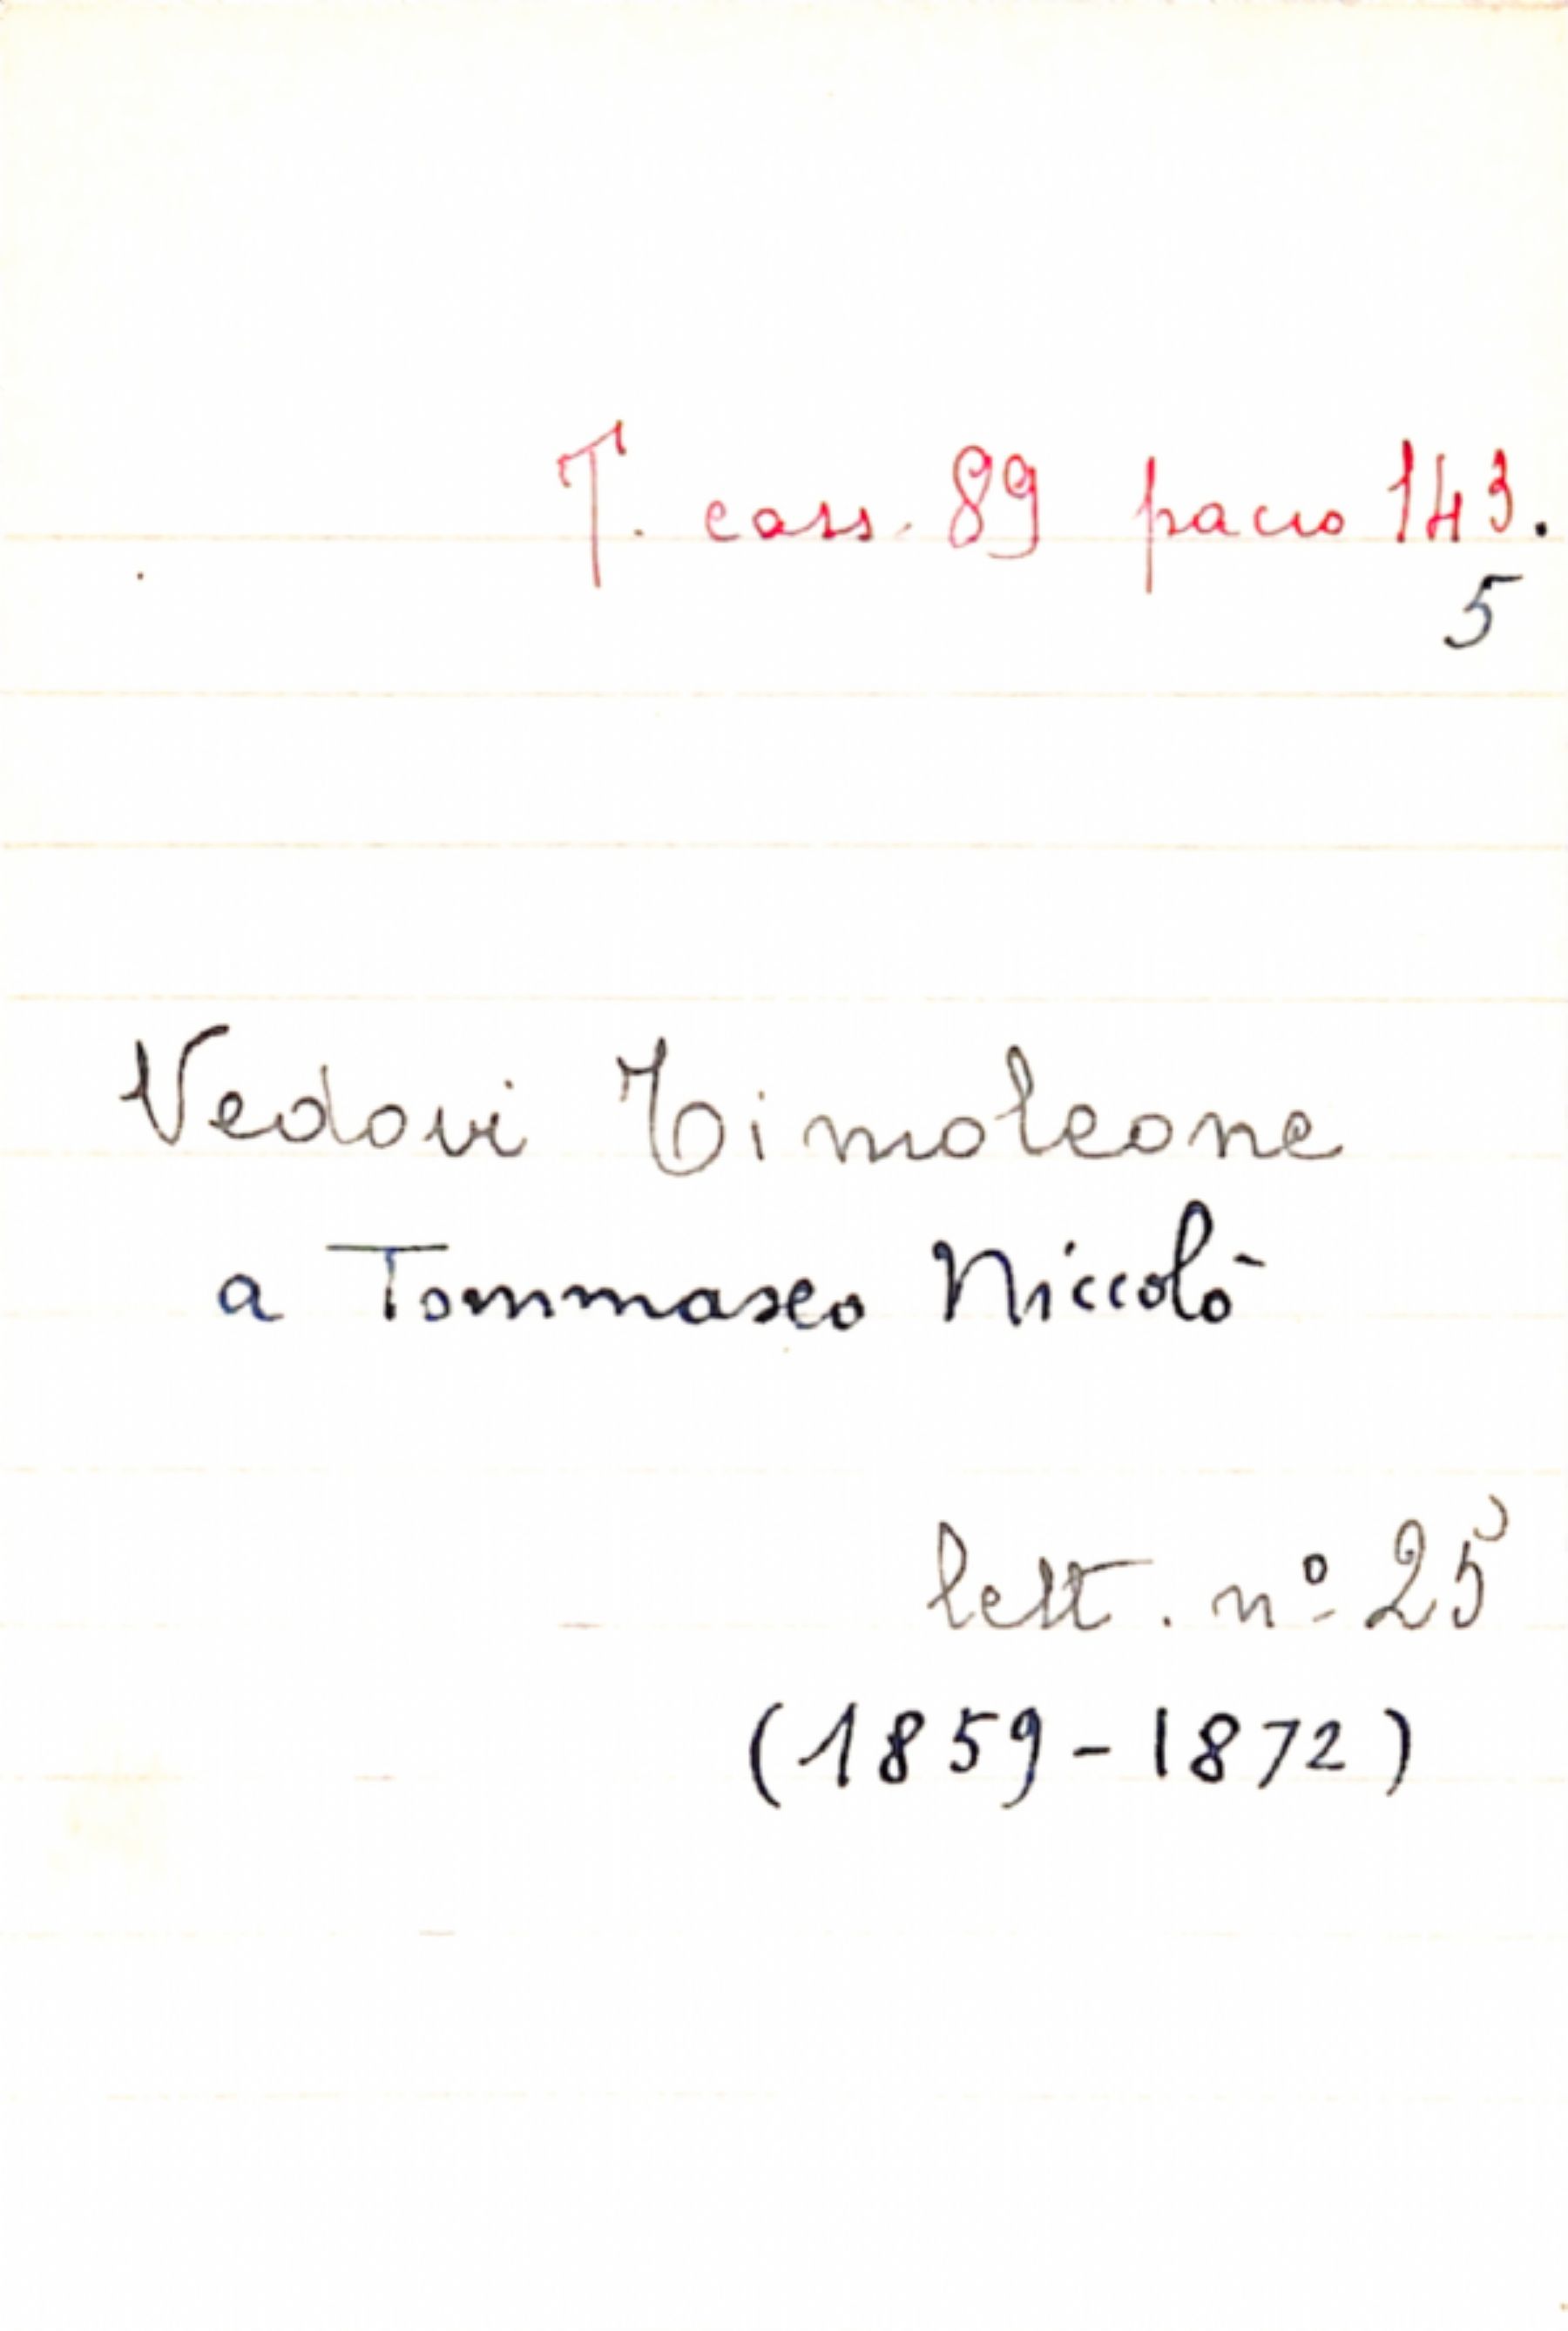 T. cass. 89 pacco 143.
5
Vedovi Timoleone
a Tommaseo Niccolò
lett. nº 25
(1859-1872)